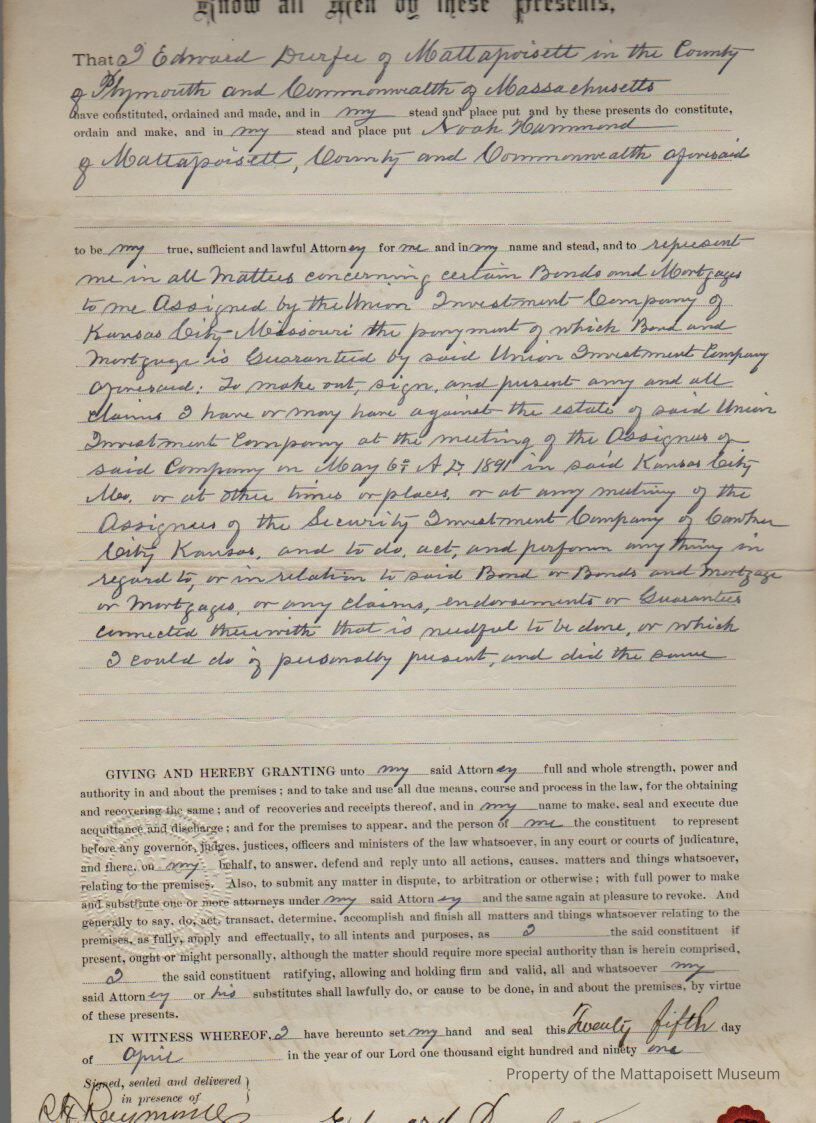 Know all Men by these Presents,
That I Edward Durfee of Mattapoisett in the County
of Plymouth and Commonwealth of Massachusetts
have constituted, ordained and made, and in my stead and place put and by these presents do constitute,
ordain and make, and in my stead and place put Noah Hammond
of Mattapoisett, County and Commonwealth aforesaid
to be my true, sufficient and lawful Attorney for me and in my name and stead, and to represent
me in all Matters concerning certain Bonds and Mortgages
to me Assigned by the Union Investment Company of
Kansas City Missouri the payment of which Bond and
Mortgage is Guaranteed by said Union Investment Company
aforesaid: To make out, sign, and present any and all
claims I have or may have against the estate of said Union
Investment Company at the meeting of the Assignees of
said Company on May 6th A.D. 1891 in said Kansas City
Mo. or at other times or places, or at any meeting of the
Assignees of the Security Investment Company of Cawker
City Kansas, and to do, act, and perform any thing in
regard to, or in relation to said Bond or Bonds and Mortgage
or Mortgages, or any claims, endorsements or Guarantees
connected therewith that is needful to be done, or which
I could do if personally present, and did the same
GIVING AND HEREBY GRANTING unto my said Attorney full and whole strength, power and
authority in and about the premises; and to take and use all due means, course and process in the law, for the obtaining
and recovering the same; and of recoveries and receipts thereof, and in my name to make, seal and execute due
acquittance and discharge; and for the premises to appear, and the person of me the constituent to represent
before any governor, judges, justices, officers and ministers of the law whatsoever, in any court or courts of judicature,
and there, on my behalf, to answer, defend and reply unto all actions, causes, matters and things whatsoever,
relating to the premises. Also, to submit any matter in dispute, to arbitration or otherwise; with full power to make
and substitute one or more attorneys under my said Attorney and the same again at pleasure to revoke. And
generally to say, do, act, transact, determine, accomplish and finish all matters and things whatsoever relating to the
premises, as fully, amply and effectually, to all intents and purposes, as I the said constituent if
present, ought or might personally, although the matter should require more special authority than is herein comprised,
I the said constituent ratifying, allowing and holding firm and valid, all and whatsoever my
said Attorney or his substitutes shall lawfully do, or cause to be done, in and about the premises, by virtue
of these presents.
IN WITNESS WHEREOF, I have hereunto set my hand and seal this Twenty fifth day
of April in the year of our Lord one thousand eight hundred and ninety one
Property of the Mattapoisett Museum
Signed, sealed and delivered
in presence of
Raymond
Edward